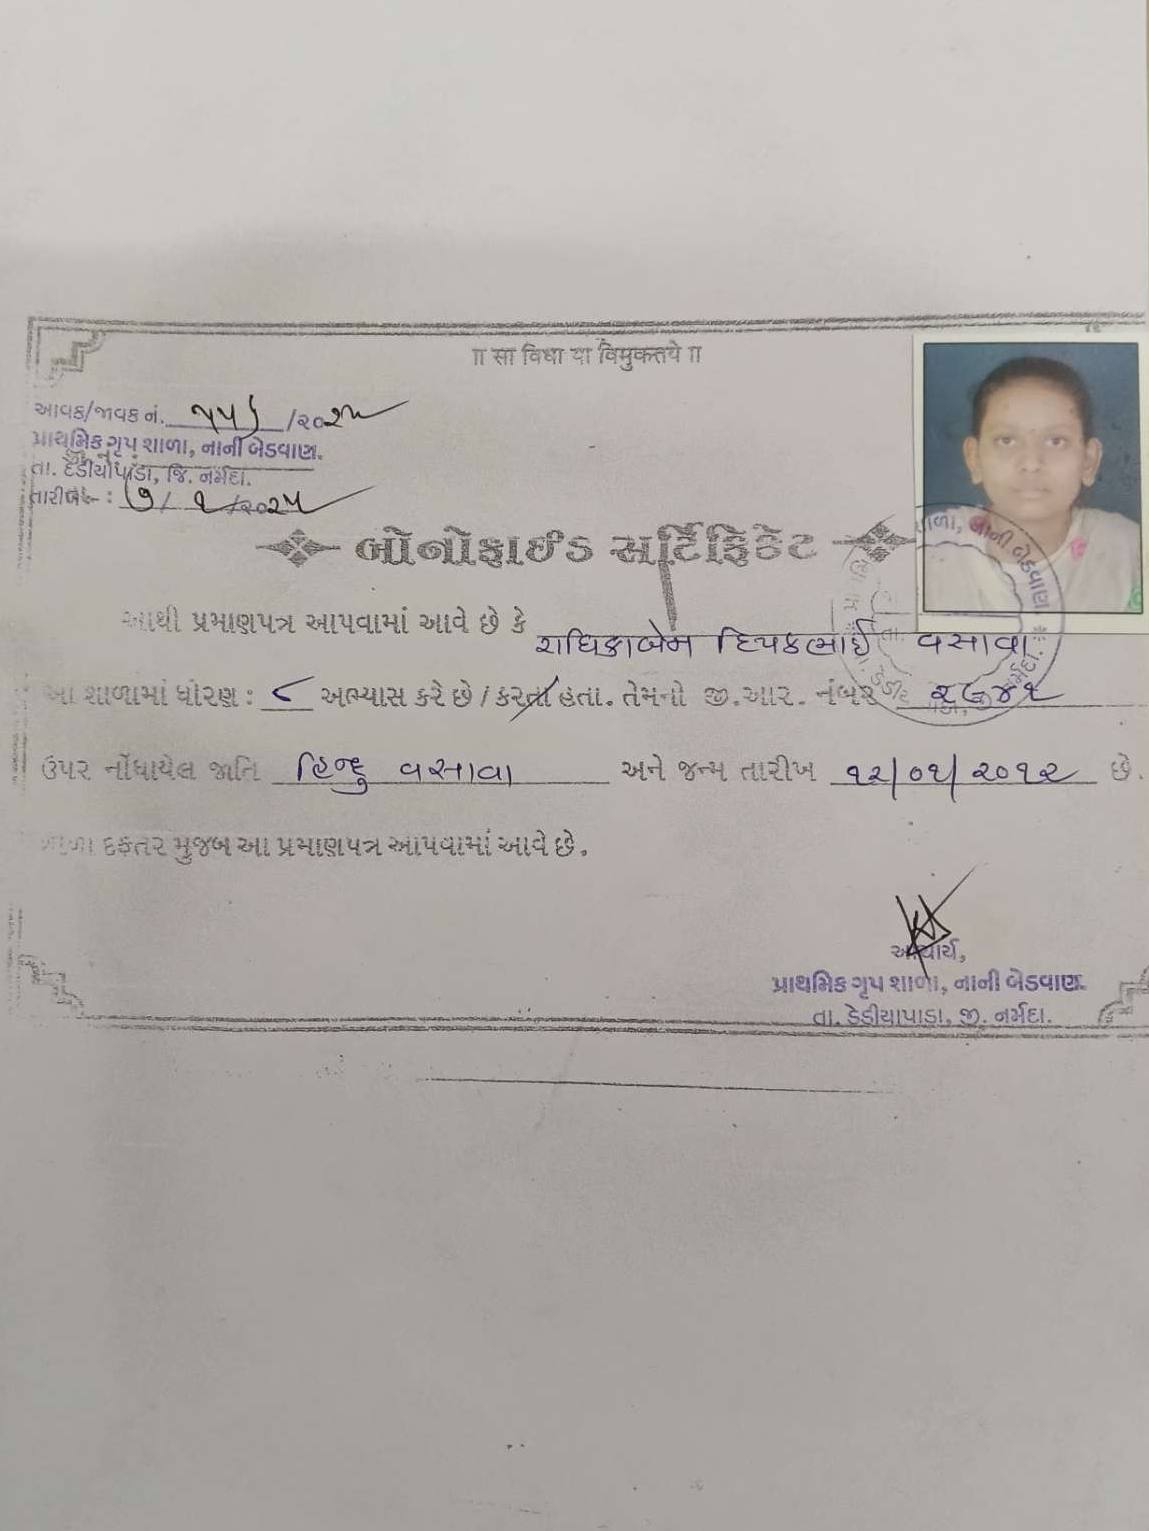 ॥ सा विद्या या विमुक्तये ॥
આવક/જાવક નં. /૨૦૨૫
પ્રાથમિક ગૃપ શાળા, નાની બેડવાણ.
તા. દેડીયાપાડા, જિ. નર્મદા.
તારીખ :- ૭/ ૧ /૨૦૨૫
બોનોફાઈડ સર્ટિફિકેટ
આથી પ્રમાણપત્ર આપવામાં આવે છે કે રાધિકાબેન દિપકભાઈ વસાવા
આ શાળામાં ધોરણ : ૮ અભ્યાસ કરે છે / કરતા હતા. તેમનો જી.આર. નંબર
ઉપર નોંધાયેલ જાતિ હિન્દુ વસાવા અને જન્મ તારીખ ૧૨/૦૧/૨૦૧૨ છે.
શાળા દફતર મુજબ આ પ્રમાણપત્ર આપવામાં આવે છે.
આચાર્ય,
પ્રાથમિક ગૃપ શાળા, નાની બેડવાણ.
તા. ડેડીયાપાડા, જી. નર્મદા.